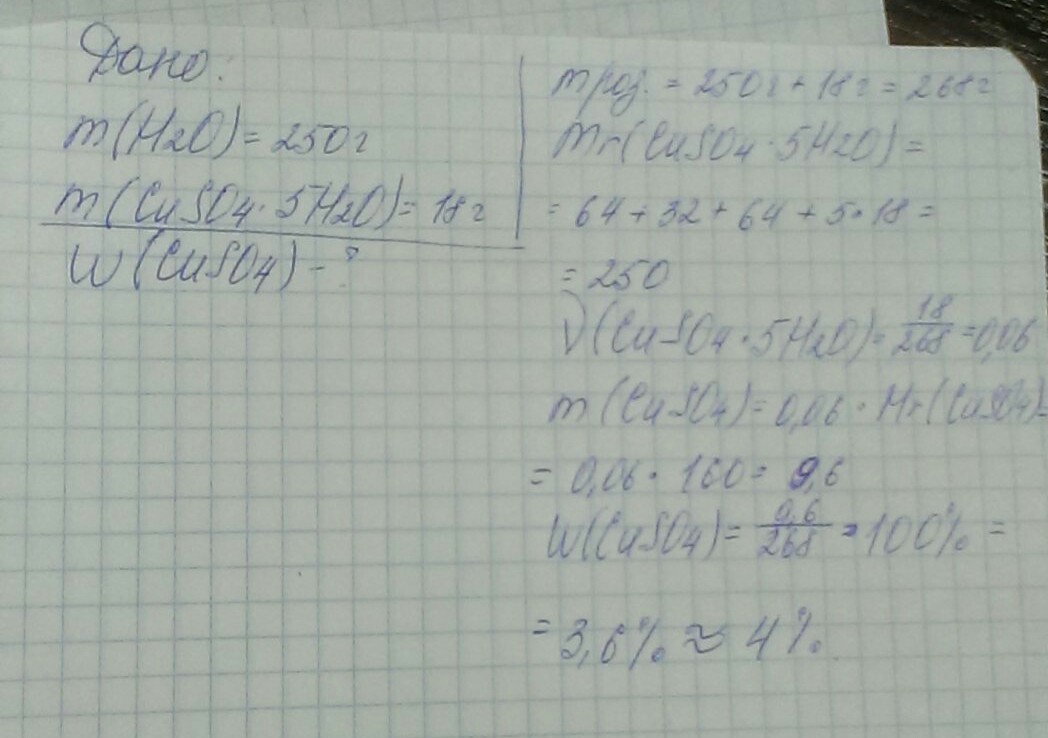 Дано:
m(H2O)= 250г
m(CuSO4·5H2O)= 18г
W(CuSO4) - ?
mроз. = 250г + 18г = 268г
Mr(CuSO4·5H2O) =
= 64 + 32 + 64 + 5·18 =
= 250
ν(CuSO4·5H2O)= 18/268 =0,06
m(CuSO4)= 0,06 · Mr(CuSO4)=
= 0,06 · 160 = 9,6
W(CuSO4)= 9,6/268 · 100% =
= 3,6% ≈ 4%